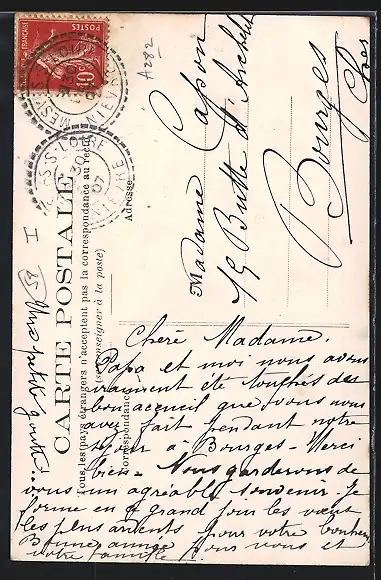 CARTE POSTALE
Tous les pays étrangers n'acceptent pas la correspondance au recto
(se renseigner à la poste)
Correspondance
Adresse
A282
10
POSTES
Madame Capon
19 Butte d'Archelet
Bourges
Cher
I
Chère Madame,
Papa et moi nous avons
vraiment été touchés du
bon accueil que vous nous
avez fait pendant notre
séjour à Bourges - Merci
bien - Nous garderons de
vous un agréable souvenir. Je
forme en grand jour les vœux
les plus ardents pour votre bonheur
Bonne année pour vous et
votre famille